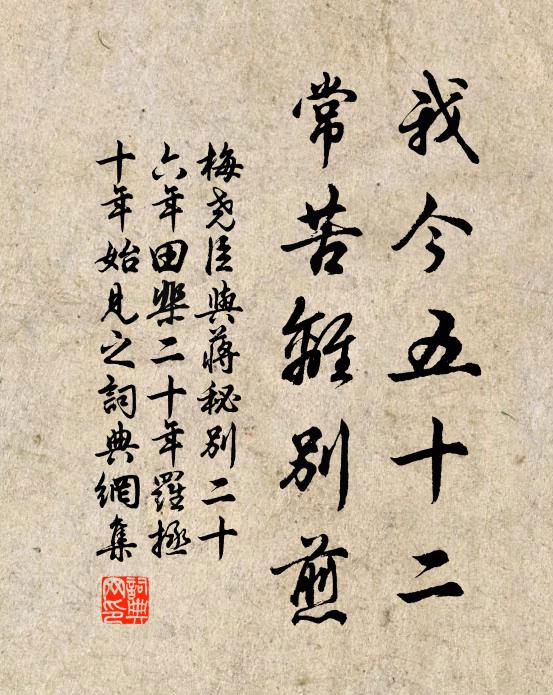 我今五十二
常苦離別煎
梅尧臣與蔣秘別二十
六年田棐二十年羅拯
十年始見之詞典網集
詞典網印